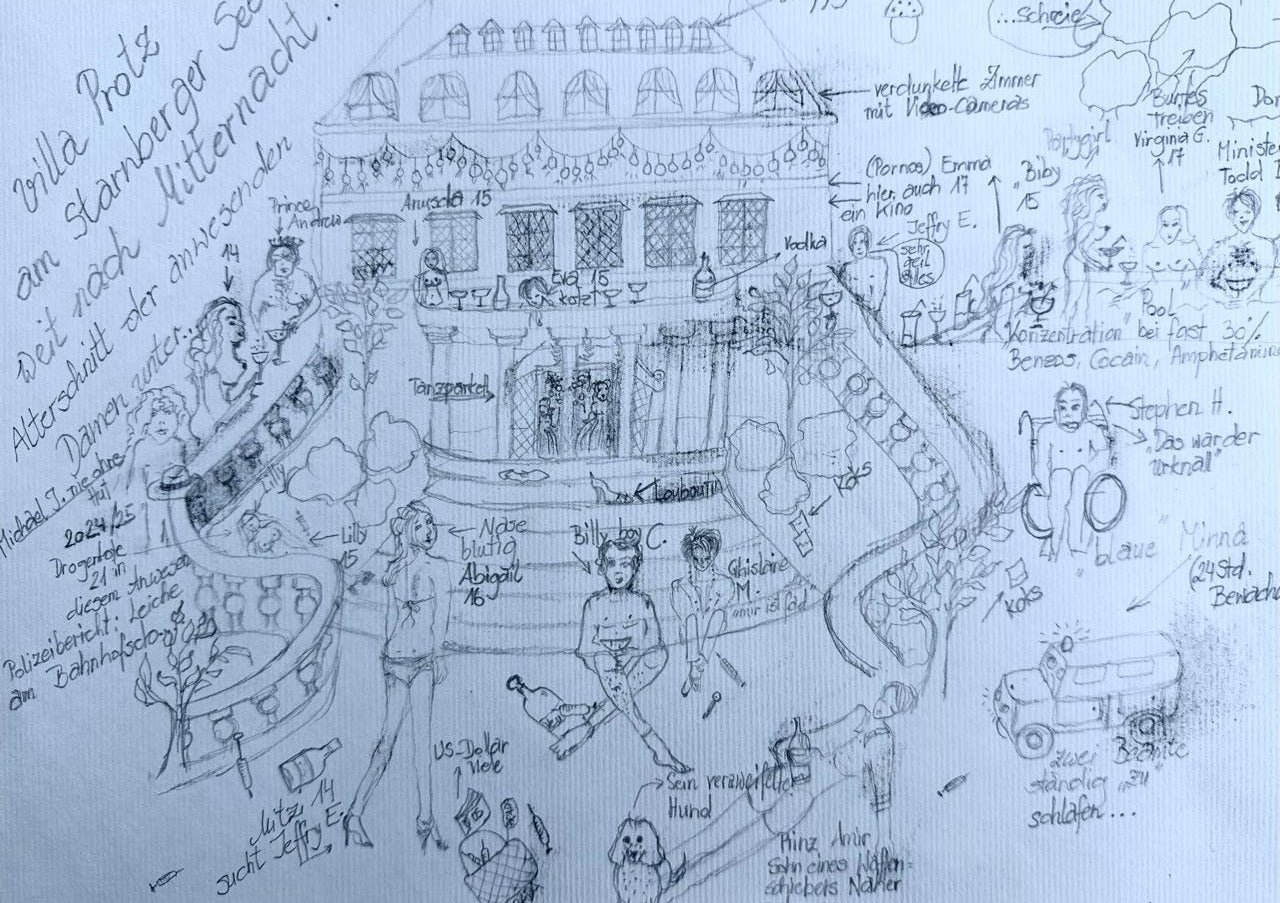 Villa Protz
am Starnberger See
weit nach Mitternacht...
Altersschnitt der anwesenden
Damen unter...
...scheie
verdunkelte Zimmer
mit Video-Cameras
(Pornos) Emma
hier, auch 17
ein Kino
Jeffry E.
sehr
geil
alles
"Biby
15
Partygirl
Buntes
Treiben
Virginia G.
17
Ministe
Todd
Prince
Andrew
14
Anuscha 15
Eva 15
kotzt
Vodka
Pool
"Konzentration" bei fast 30%
Benzos, Cocain, Amphetamine
Tanzparkett
Stephen H.
"Das war der
Urknall"
Michael J. nie ohne
Hut
2024/25
Drogentote
21 in
diesem Anwesen
Polizeibericht: Leiche
am Bahnhofsclo
Lilly
Lilly
15
Nase
blutig
Abigail
16
Louboutin
Koks
Billy boy C.
Ghislaine
M.
"mir ist
"blaue Minna
(24 Std.
Bewachu
Koks
zwei Beamte
ständig "zu"
schlafen...
Mitzi 14
sucht Jeffry E.
US-Dollar
viele
Sein verzweifelter
Hund
Prinz Amir
Sohn eines Waffen-
schiebers Naher